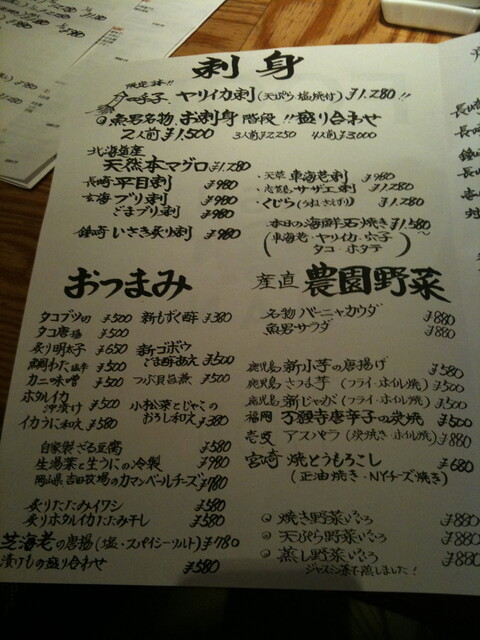 刺身
限定1本!!
呼子 ヤリイカ刺(天ぷら・塩焼付) ¥1,280!!
◎魚男名物 お刺身 階段!! 盛り合わせ
2人前 ¥1,500 3人前 ¥2,250 4人前 ¥3,000
北海道産
天然本マグロ ¥1,280
長崎 平目刺 ¥980
玄海 ブリ刺 ¥980
ごまブリ刺 ¥980
鐘崎 いさき炙り刺 ¥980
・天草 車海老刺 ¥980
・志賀島 サザエ刺 ¥1,280
・くじら(うねさえずり) ¥1,280
本日の海鮮石焼き ¥1,580
(車海老・ヤリイカ・穴子
タコ・ホタテ)
おつまみ
タコブツ切 ¥500
タコ唐揚 ¥500
炙り明太子 ¥650
鯛わた塩辛 ¥500
カニ味噌 ¥500
ホタルイカ
沖漬け ¥500
イカうに和え ¥580
新もずく酢 ¥380
新ゴボウ
ごま酢あえ ¥500
つぶ貝旨煮 ¥500
小松菜とじゃこの
おろし和え ¥380
自家製ざる豆腐 ¥580
生湯葉と生うにの冷製 ¥980
岡山県 吉田牧場のカマンベールチーズ ¥980
炙りたたみイワシ ¥580
炙りホタルイカたたみ干し ¥580
芝海老の唐揚(塩・スパイシーソルト) ¥780
漬けもの盛り合わせ ¥580
産直 農園野菜
名物 バーニャカウダ ¥880
魚男サラダ ¥880
鹿児島 新小芋の唐揚げ ¥580
鹿児島 さつま芋 (フライ・ホイル焼) ¥500
鹿児島 新じゃが (フライ・ホイル焼) ¥500
福岡 万願寺唐辛子の炭焼 ¥500
壱岐 アスパラ (炭焼き・ホイル焼) ¥880
宮崎 焼とうもろこし ¥680
(正油焼き・NYチーズ焼き)
◎焼き野菜いろいろ ¥880
◎天ぷら野菜いろいろ ¥880
◎蒸し野菜いろいろ ¥880
ジャスミン茶で蒸しました!
長崎
長崎
鐘崎